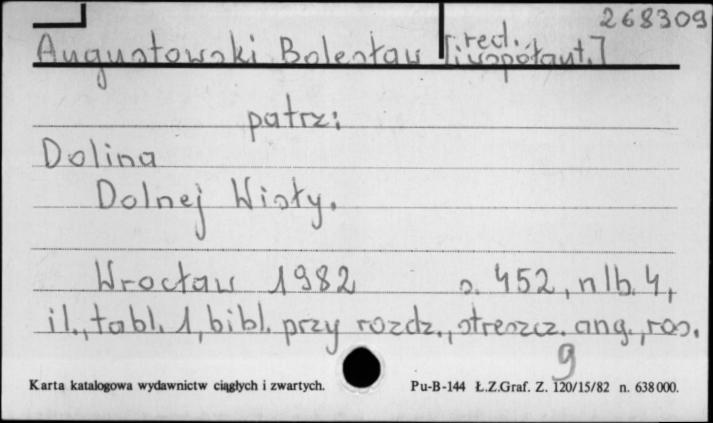 268309
Augustowski Bolesław [red. i współaut.]
patrz:
Dolina
Dolnej Wisły.
Wrocław 1982 s. 452, nlb. 4,
il., tabl. 1, bibl. przy rozdz., streszcz. ang., ros.
g
Karta katalogowa wydawnictw ciągłych i zwartych. Pu-B-144 Ł.Z.Graf. Z. 120/15/82 n. 638000.